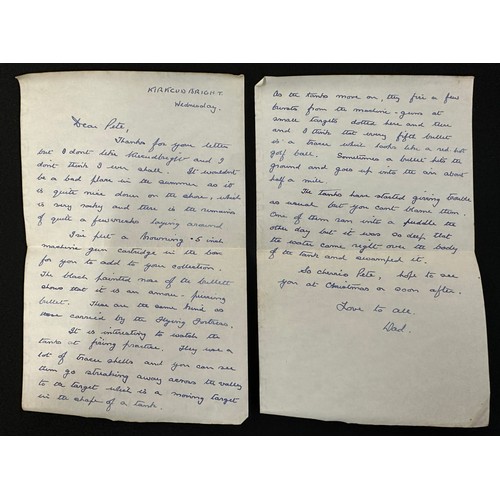 KIRKCUDBRIGHT.
Wednesday.
Dear Pete,
Thanks for your letter
but I don't like Kirkcudbright and I
don't think I ever shall. It wouldn't
be a bad place in the summer as it
is quite nice down on the shore, which
is very rocky and there is the remains
of quite a few wrecks laying around
I've put a Browning .5 inch
machine gun cartridge in the box
for you to add to your collection.
The black painted nose of the bullett
shows that it is an armour-piercing
bullet. These are the same kind as
were carried by the Flying Fortress.
It is interesting to watch the
tanks at firing practice. They use a
lot of tracer shells and you can see
them go streaking away across the valley
to a target which is a moving target
in the shape of a tank.
As the tanks move on, they fire a few
bursts from the machine-guns at
small targets dotted here and there
and I think that every fifth bullet
is a tracer which looks like a red hot
golf ball. Sometimes a bullet hits the
ground and goes up into the air about
half a mile.
The tanks have started giving trouble
as usual but you can't blame them.
One of them ran into a puddle the
other day but it was so deep that
the water came right over the body
of the tank and swamped it.
So cheerio Pete, hope to see
you at Christmas or soon after.
Love to all.
Dad.